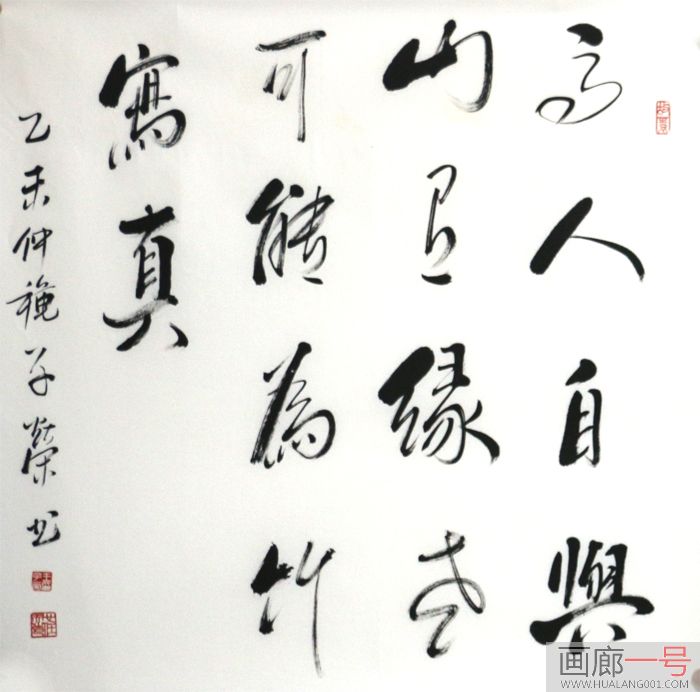 高人自與
山有緣老
可能為竹
寫真
乙未仲穐子榮书
画廊一号
WWW.HUALANG001.COM